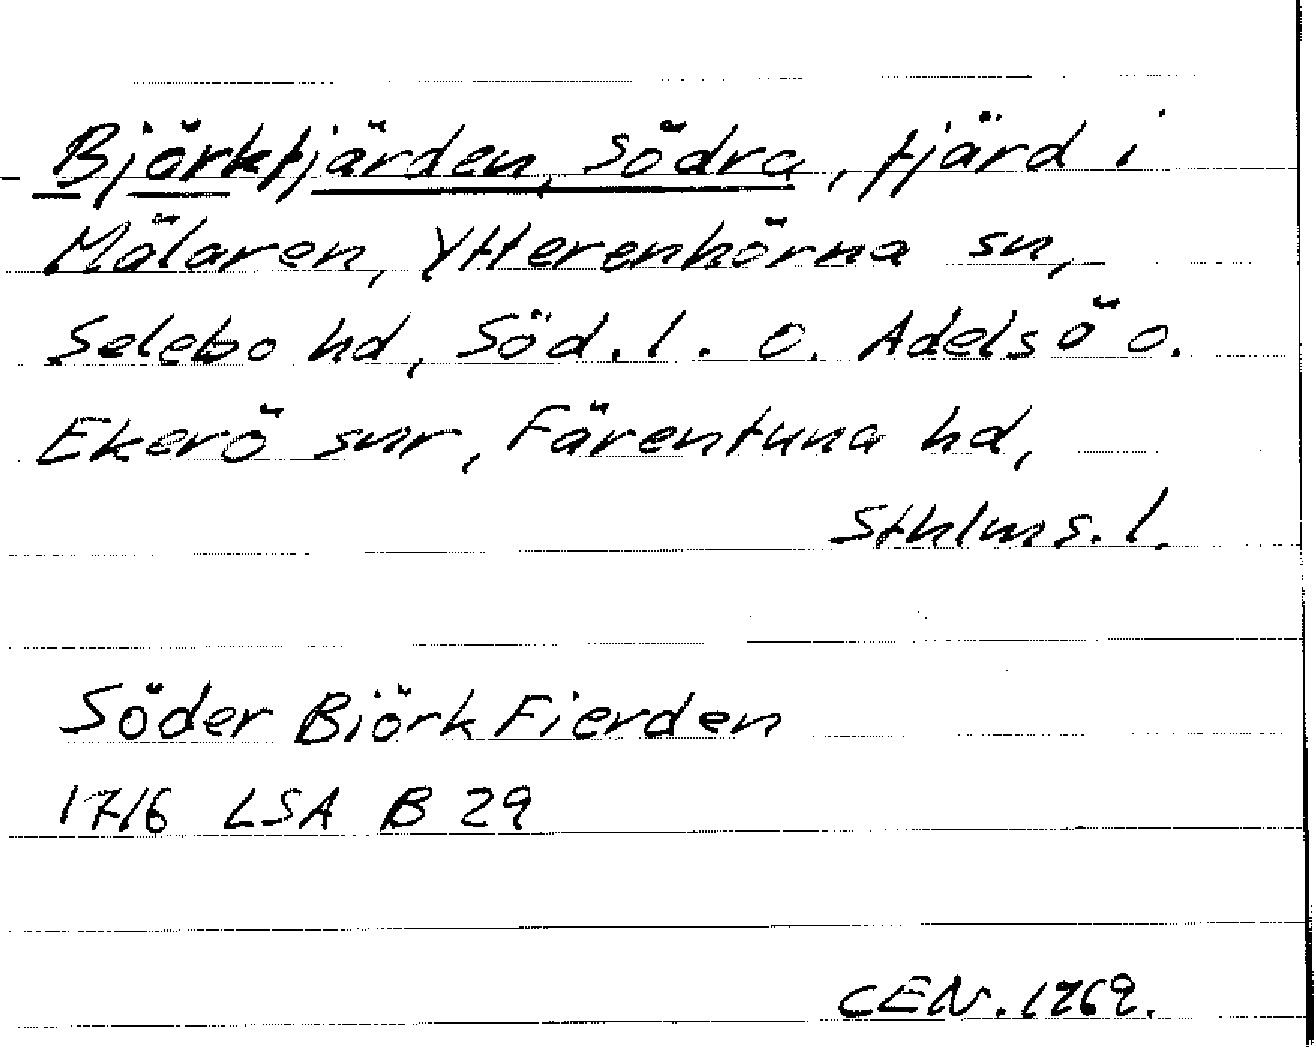 Björkfjärden, södra, fjärd i
Mälaren, Ytterenhörna sn,
Selebo hd, Söd. l. o. Adelsö o.
Ekerö snr, Färentuna hd,
Sthlms. l.
Söder Björk Fierden
1716 LSA B 29
CEN. 1969.